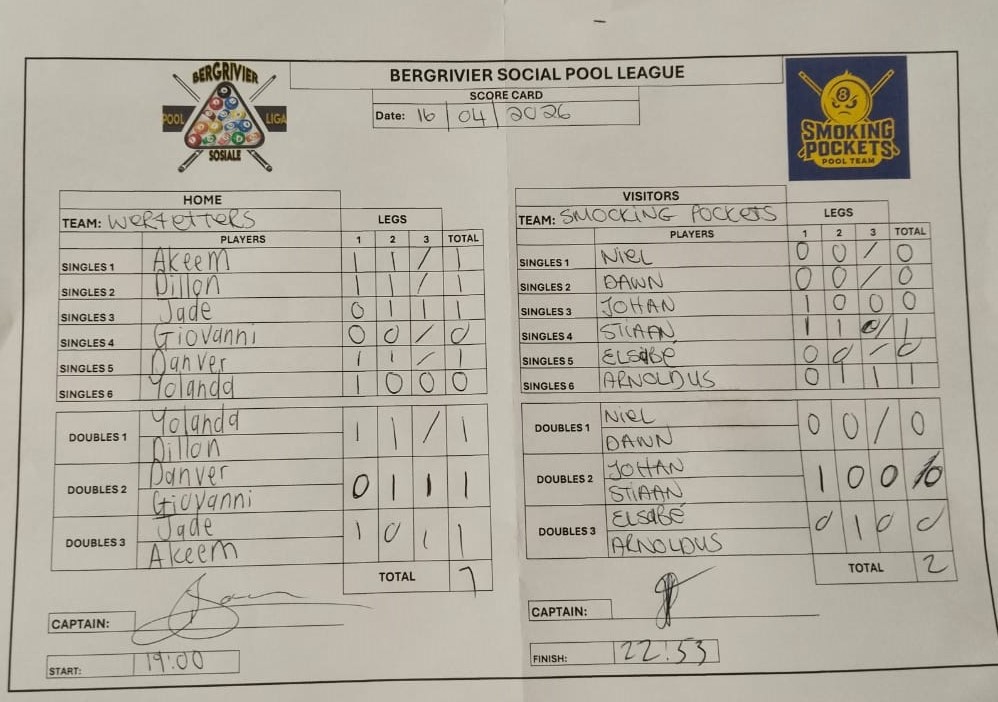 BERGRIVIER
POOL LIGA
SOSIALE
BERGRIVIER SOCIAL POOL LEAGUE
SCORE CARD
Date: 16 | 04 | 2026
8
SMOKING
POCKETS
POOL TEAM
HOME
TEAM: WERFETTERS LEGS
PLAYERS 1 2 3 TOTAL
SINGLES 1 Akeem 1 1 / 1
SINGLES 2 Dillon 1 1 / 1
SINGLES 3 Jade 0 1 1 1
SINGLES 4 Giovanni 0 0 / 0
SINGLES 5 Danver 1 1 / 1
SINGLES 6 Yolanda 1 0 0 0
DOUBLES 1 Yolanda 1 1 / 1
Dillon
DOUBLES 2 Danver 0 1 1 1
Giovanni
DOUBLES 3 Jade 1 0 1 1
Akeem
TOTAL 7
CAPTAIN:
START: 19:00
VISITORS
TEAM: SMOCKING POCKETS LEGS
PLAYERS 1 2 3 TOTAL
SINGLES 1 NIEL 0 0 / 0
SINGLES 2 DAWN 0 0 / 0
SINGLES 3 JOHAN 1 0 0 0
SINGLES 4 STIAAN 1 1 / 1
SINGLES 5 ELSABÉ 0 0 / 0
SINGLES 6 ARNOLDUS 0 1 1 1
DOUBLES 1 NIEL 0 0 / 0
DAWN
DOUBLES 2 JOHAN 1 0 0 0
STIAAN
DOUBLES 3 ELSABÉ 0 1 0 0
ARNOLDUS
TOTAL 2
CAPTAIN:
FINISH: 22:53